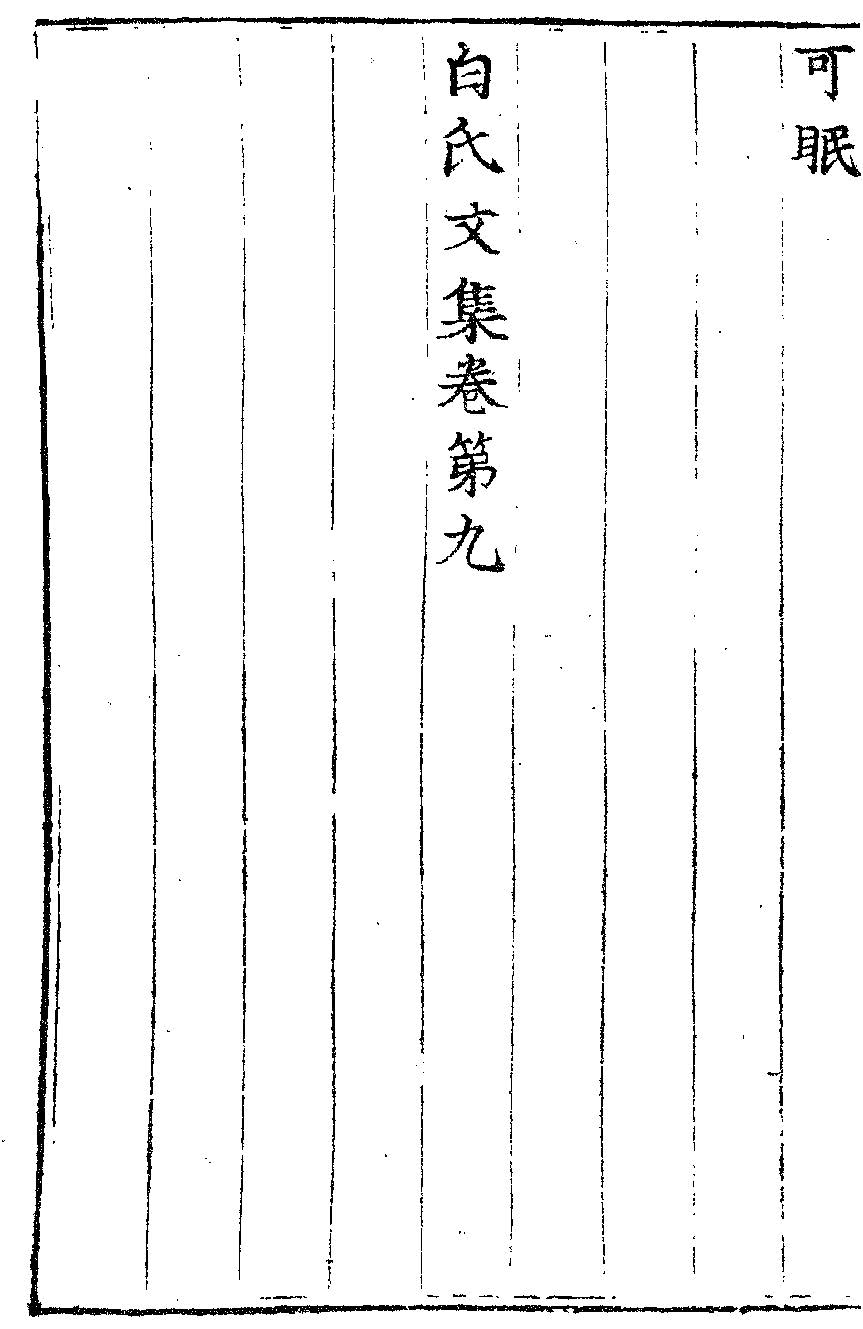 可眠
白氏文集卷第九